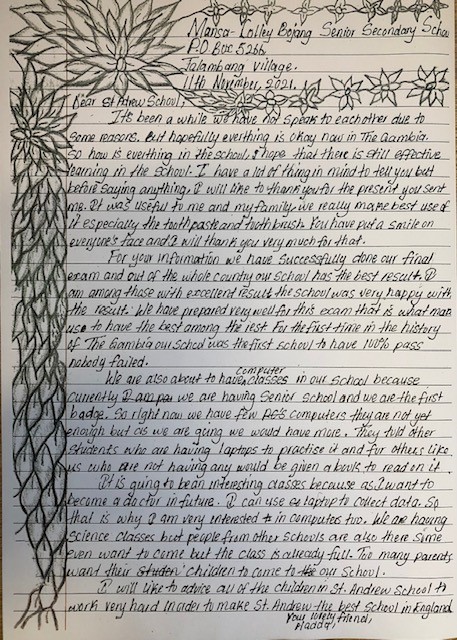 Mansa-Colley Bojang Senior Secondary School
P.O Box 5266
Jalambang village.
11th November, 2021.
Dear St Adrew School,
It's been a while we have not speak to eachother due to
some reasons. But hopefully everthing is okay now in The Gambia.
so how is everthing in the school, I hope that there is still effective
learning in the school. I have a lot of thing in mind to tell you but
before saying anything, I will like to thank you for the present you sent
me. It was useful to me and my family. we really make best use of
it especially the toothpaste and toothbrush. You have put a smile on
everyone's face and I will thank you very much for that.
For your information we have successfully done our final
exam and out of the whole country our school has the best result. I
am among those with excellent result the school was very happy with
the result. We have prepared very well for this exam that is what make
use to have the best among the rest For the first time in the history
of The Gambia our school was the first school to have 100% pass
nobody failed.
We are also about to have computer classes in our school because
currently I am we are having Senior school and we are the first
badge. So right now we have few computers they are not yet
enough but as we are going we would have more. They told other
students who are having laptops to practise it and for others like
us who are not having any would be given a book to read on it.
It is going to be an interesting classes because as I want to
become a doctor in future. I can use laptop to collect data. So
that is why I am very interested in computes two. We are having
science classes but people from other schools are also there some
even want to come but the class is already full. Too many parents
want their children to come to our School.
I will like to advice all of the children in St. Andrew School to
work very hard inorder to make St. Andrew the best school in England
Your lovely friend,